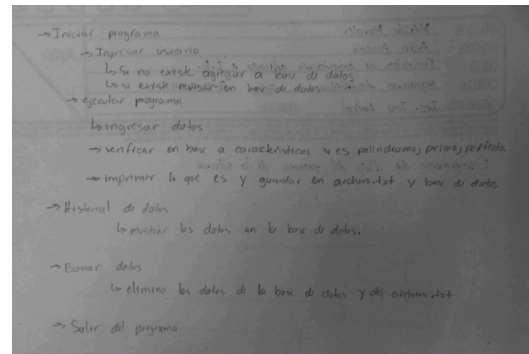 → Iniciar programa
→ Ingresar usuario
↳ Si no existe agregar a base de datos
↳ si existe revisar en base de datos
→ ejecutar programa
↳ ingresar datos
→ verificar en base a características si es palíndromo, primo, perfecto.
→ imprimir lo que es y guardar en archivo.txt y base de datos
→ Historial de datos
↳ mostrar los datos en la base de datos.
→ Borrar datos
↳ elimino los datos de la base de datos y del archivo.txt
→ Salir del programa